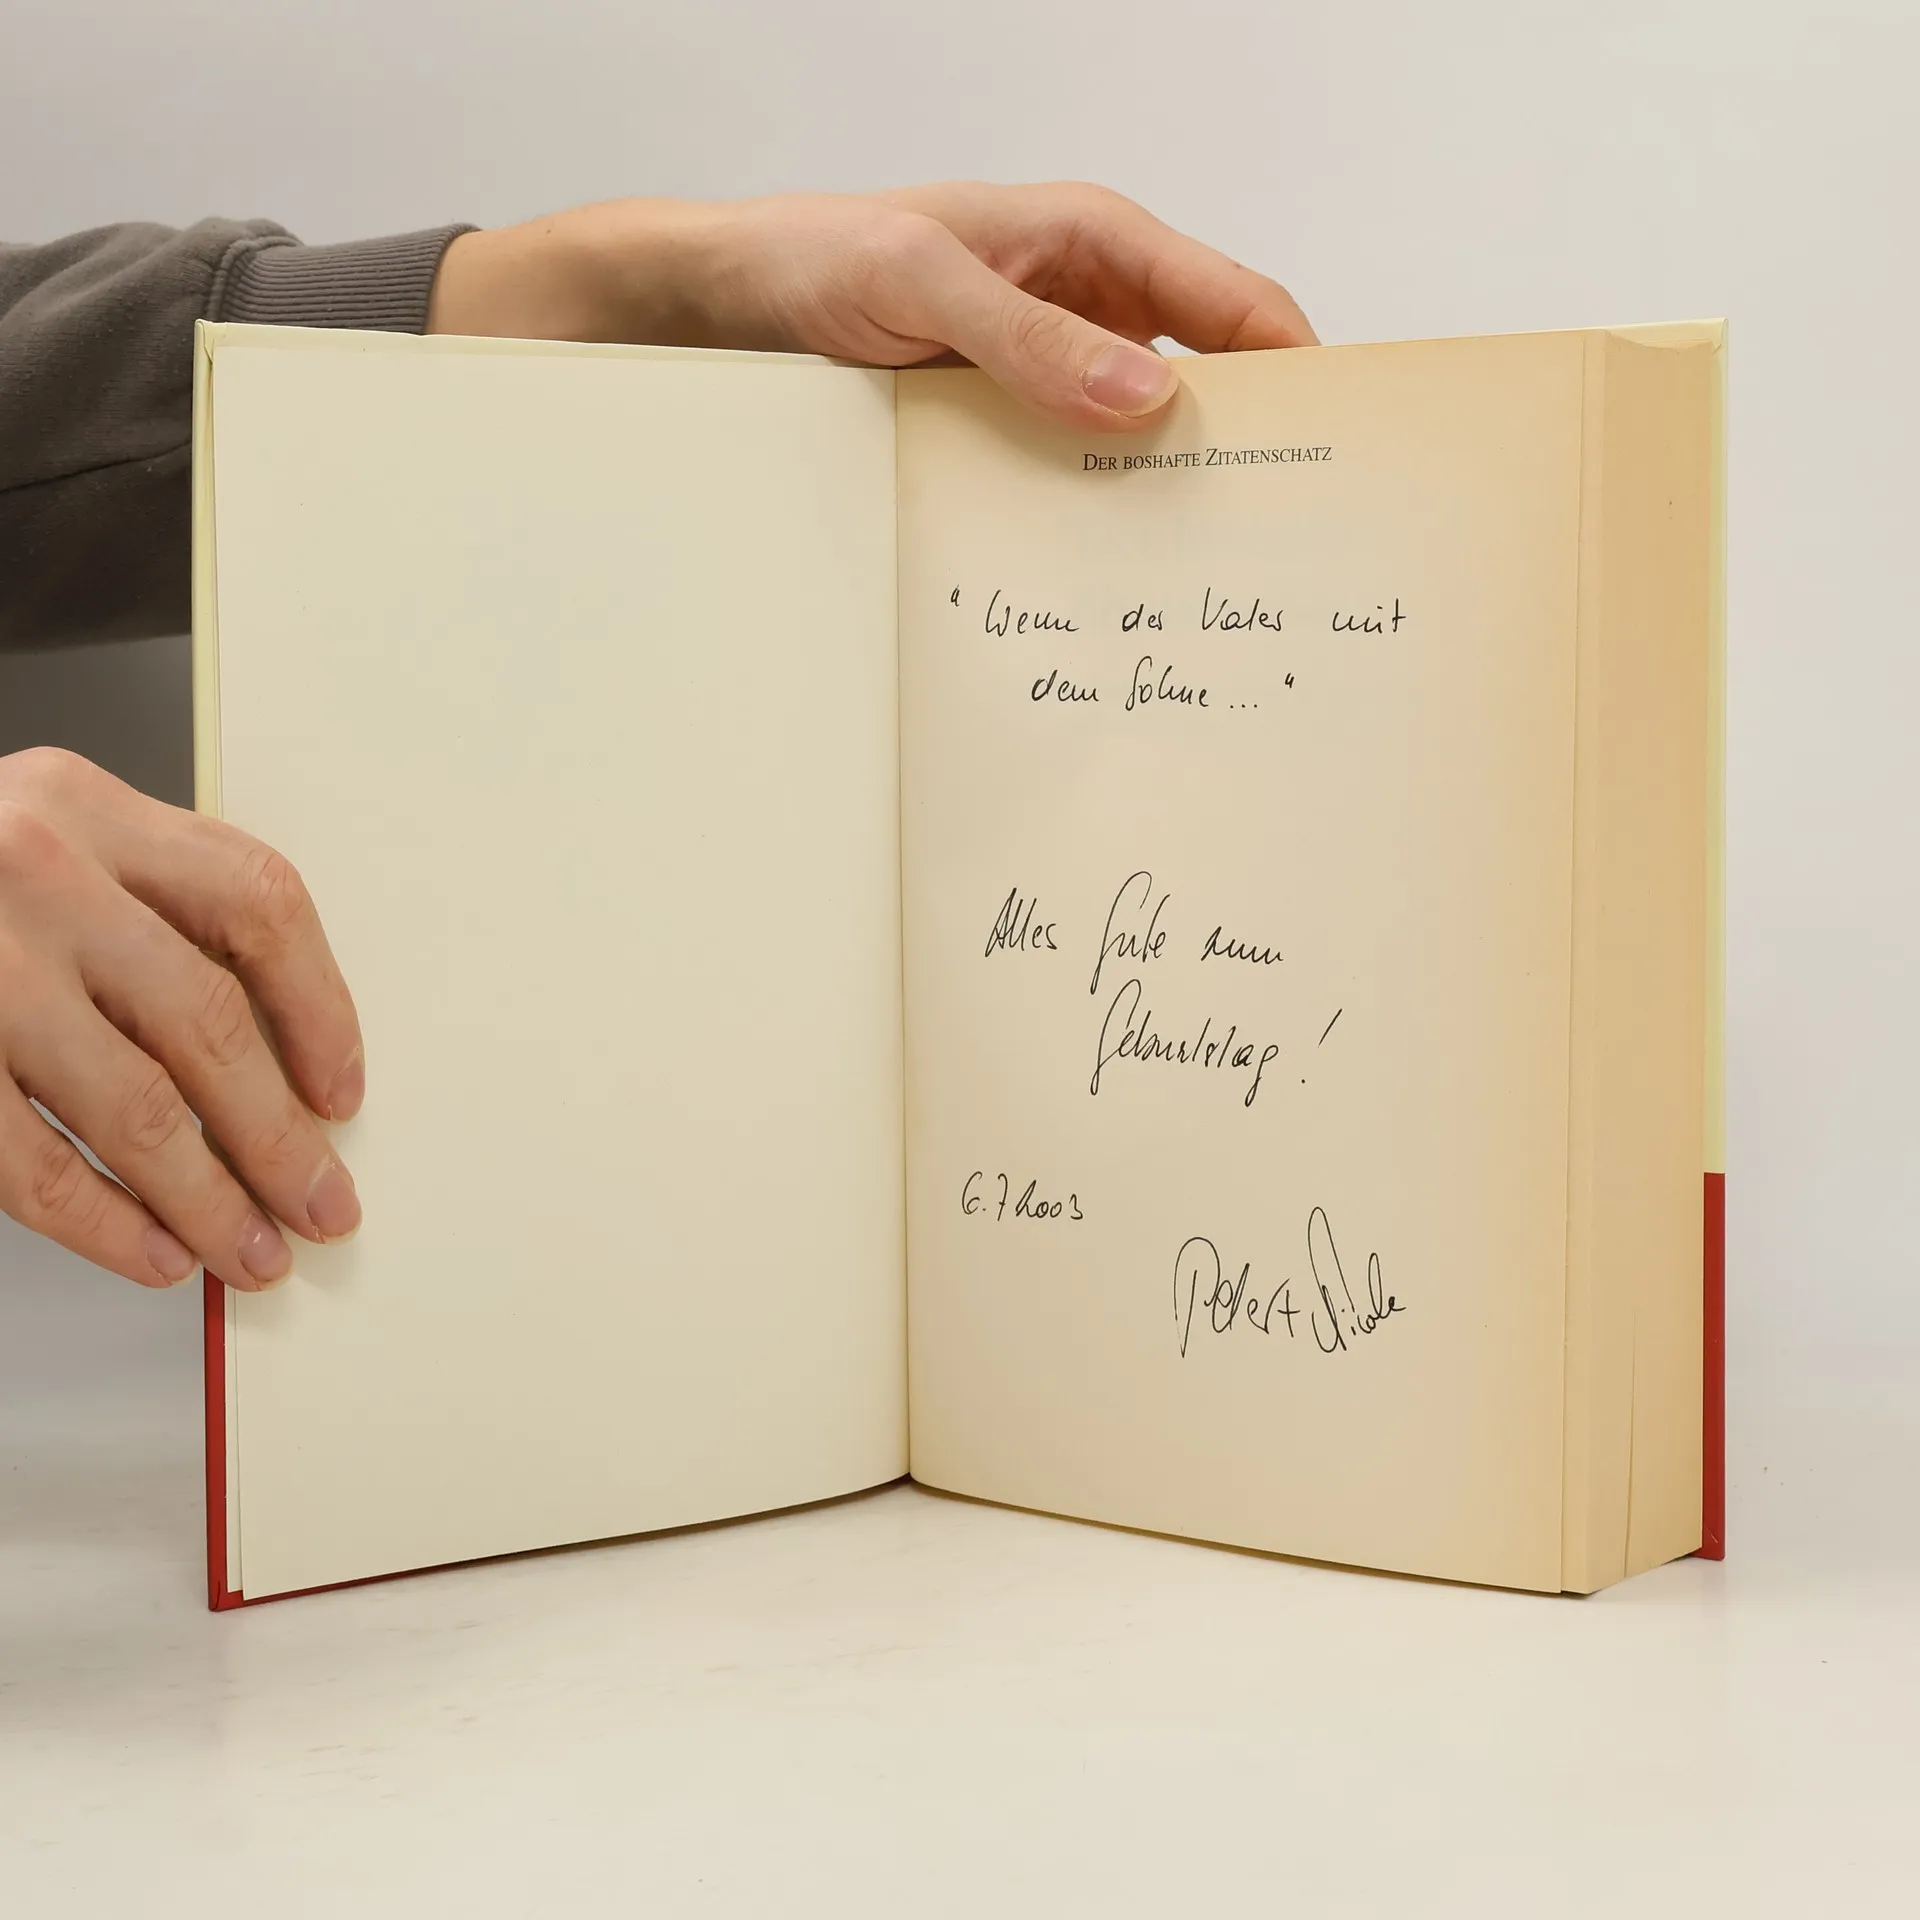 DER BOSHAFTE ZITATENSCHATZ
" Wenn der Vater mit
dem Sohne ... "
Alles Gute zum
Geburtstag !
6.7 2003
Peter + Nicole